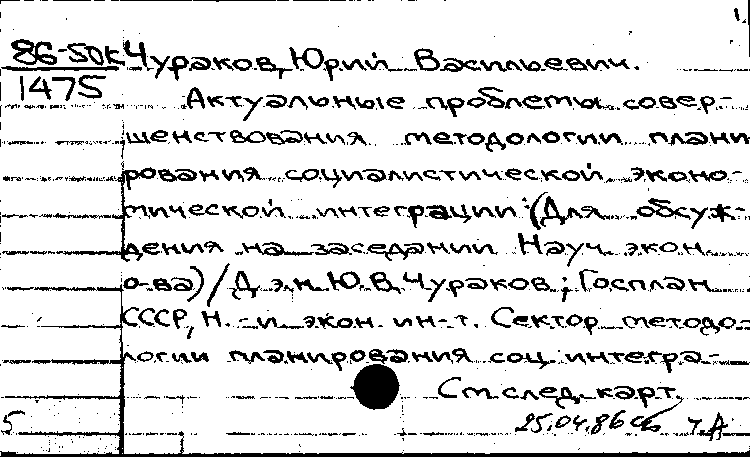 1
86-50к Чураков, Юрий Васильевич.
1475
Актуальные проблемы совер-
шенствования методологии плани
рования социалистической эконо-
мической интеграции: (Для обсуж-
дения на заседании Науч. экон.
о-ва) / Д. э. н. Ю. В. Чураков; Госплан
СССР, Н.-и. экон. ин-т. Сектор методо-
логии планирования соц. интегра-
См. след. карт.
25.04.86
5